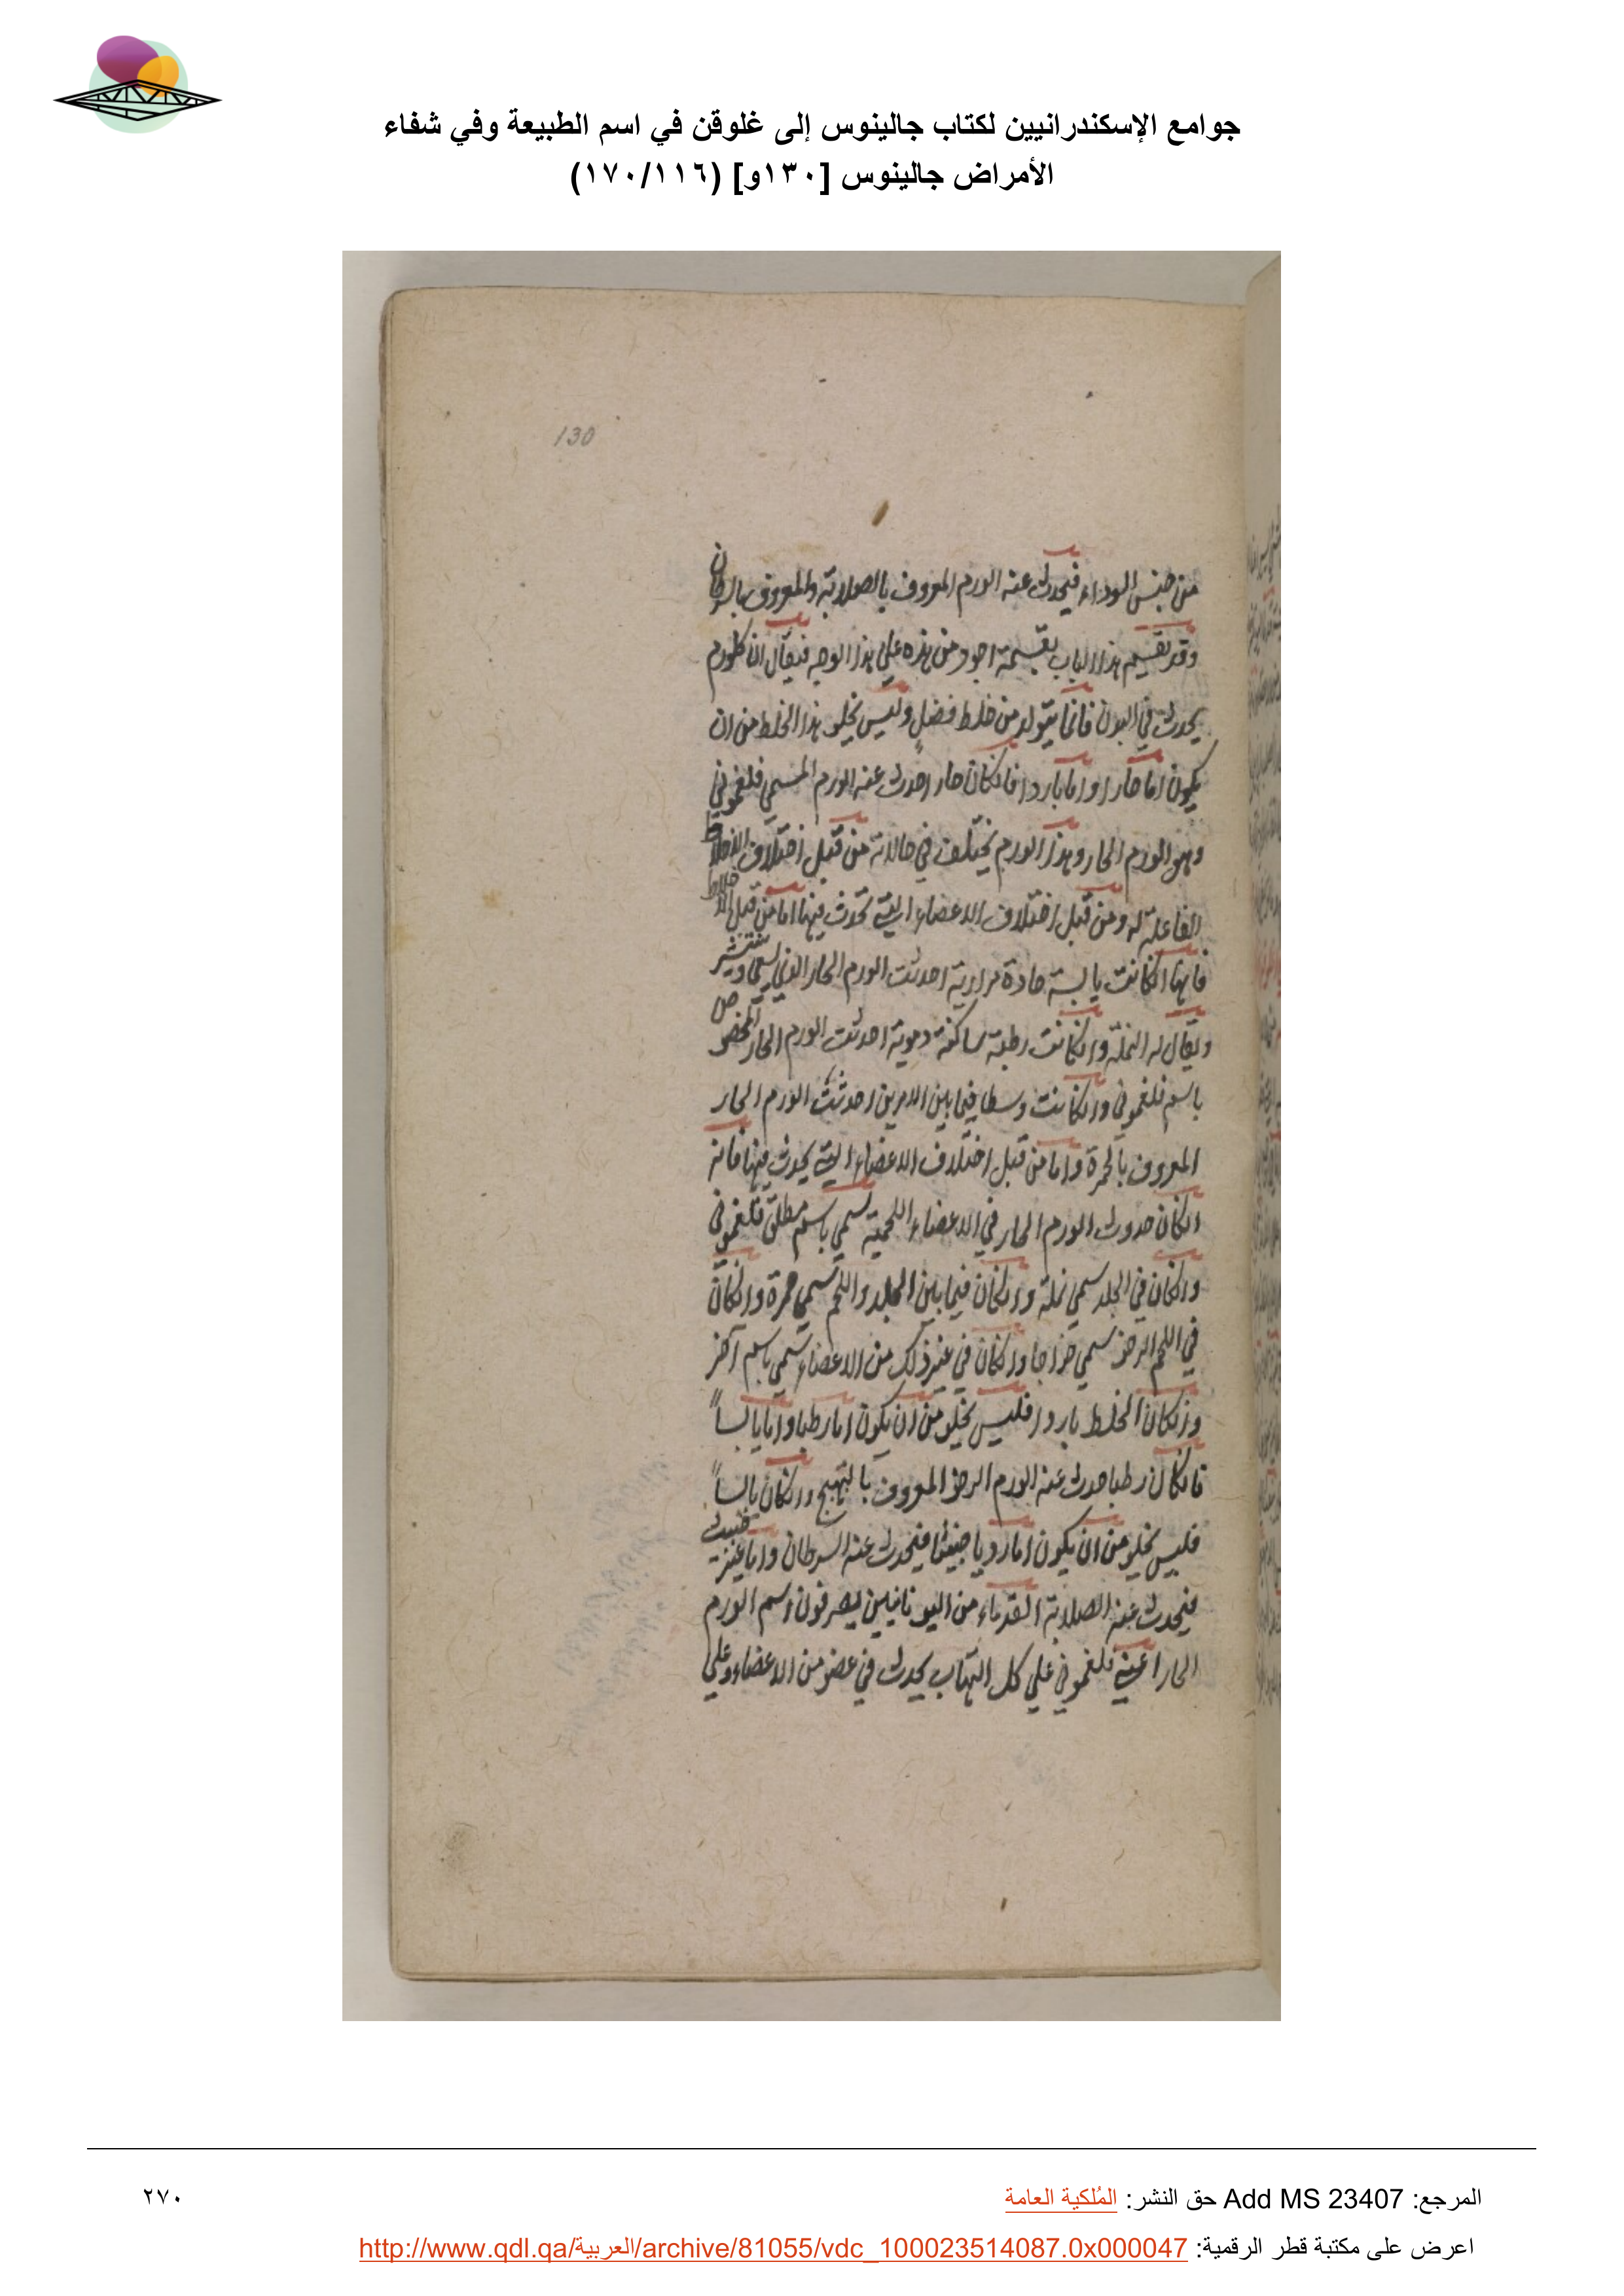 جوامع الإسكندرانيين لكتاب جالينوس إلى غلوقن في اسم الطبيعة وفي شفاء
الأمراض جالينوس [١٣٠و] (١٧٠/١١٦)
130
من جنس السوداء فيحدث عنه الورم المعروف بالصلابة والمعروف بالسرطان
وقد تقسيم هذا الباب بقسمة اجود من هذه علي هذا الوجه فيقال ان كل ورم
يحدث في البدن فانما يتولد من خلط فضل وليس يخلو هذا الخلط من ان
يكون اما حارا واما باردا فانكان حارا حدث عنه الورم المسمي فلغموني
وهو الورم الحار وهذا الورم يختلف في حالاته من قبل اختلاف الاخلاط
الفاعلة له ومن قبل اختلاف الاعضاء التي تحدث فيها اما من قبل الاخلاط
فانها انكانت يابسة حادة مرارية احدثت الورم الحار الذي يسعي وينتشر
ويقال له النملة وانكانت رطبة ساكنة دموية احدثت الورم الحار المخصوص
باسم فلغموني وانكانت وسطا فيما بين الامرين احدثت الورم الحار
المعروف بالحمرة واما من قبل اختلاف الاعضاء التي يحدث فيها فانه
انكان حدوث الورم الحار في الاعضاء اللحمية سمي باسم مطلق فلغموني
وانكان في الجلد سمي نملة وانكان فيما بين الجلد واللحم سمي حمرة وانكان
في اللحم الرخو سمي خراجا وانكان في غير ذلك من الاعضاء سمي باسم آخر
وانكان الخلط باردا فليس يخلو من ان يكون اما رطبا واما يابساً
فانكان رطبا حدث عنه الورم الرخو المعروف بالتهيج وانكان يابساً
فليس يخلو من ان يكون اما رديا خبيثا فيحدث عنه السرطان واما غير خبيث
فيحدث عنه الصلابة القدماء من اليونانيين يصرفون اسم الورم
الحار اعني فلغموني علي كل التهاب يحدث في عضو من الاعضاء وعلي
المرجع: Add MS 23407 حق النشر: المُلكية العامة
٢٧٠
اعرض على مكتبة قطر الرقمية: http://www.qdl.qa/العربية/archive/81055/vdc_100023514087.0x000047